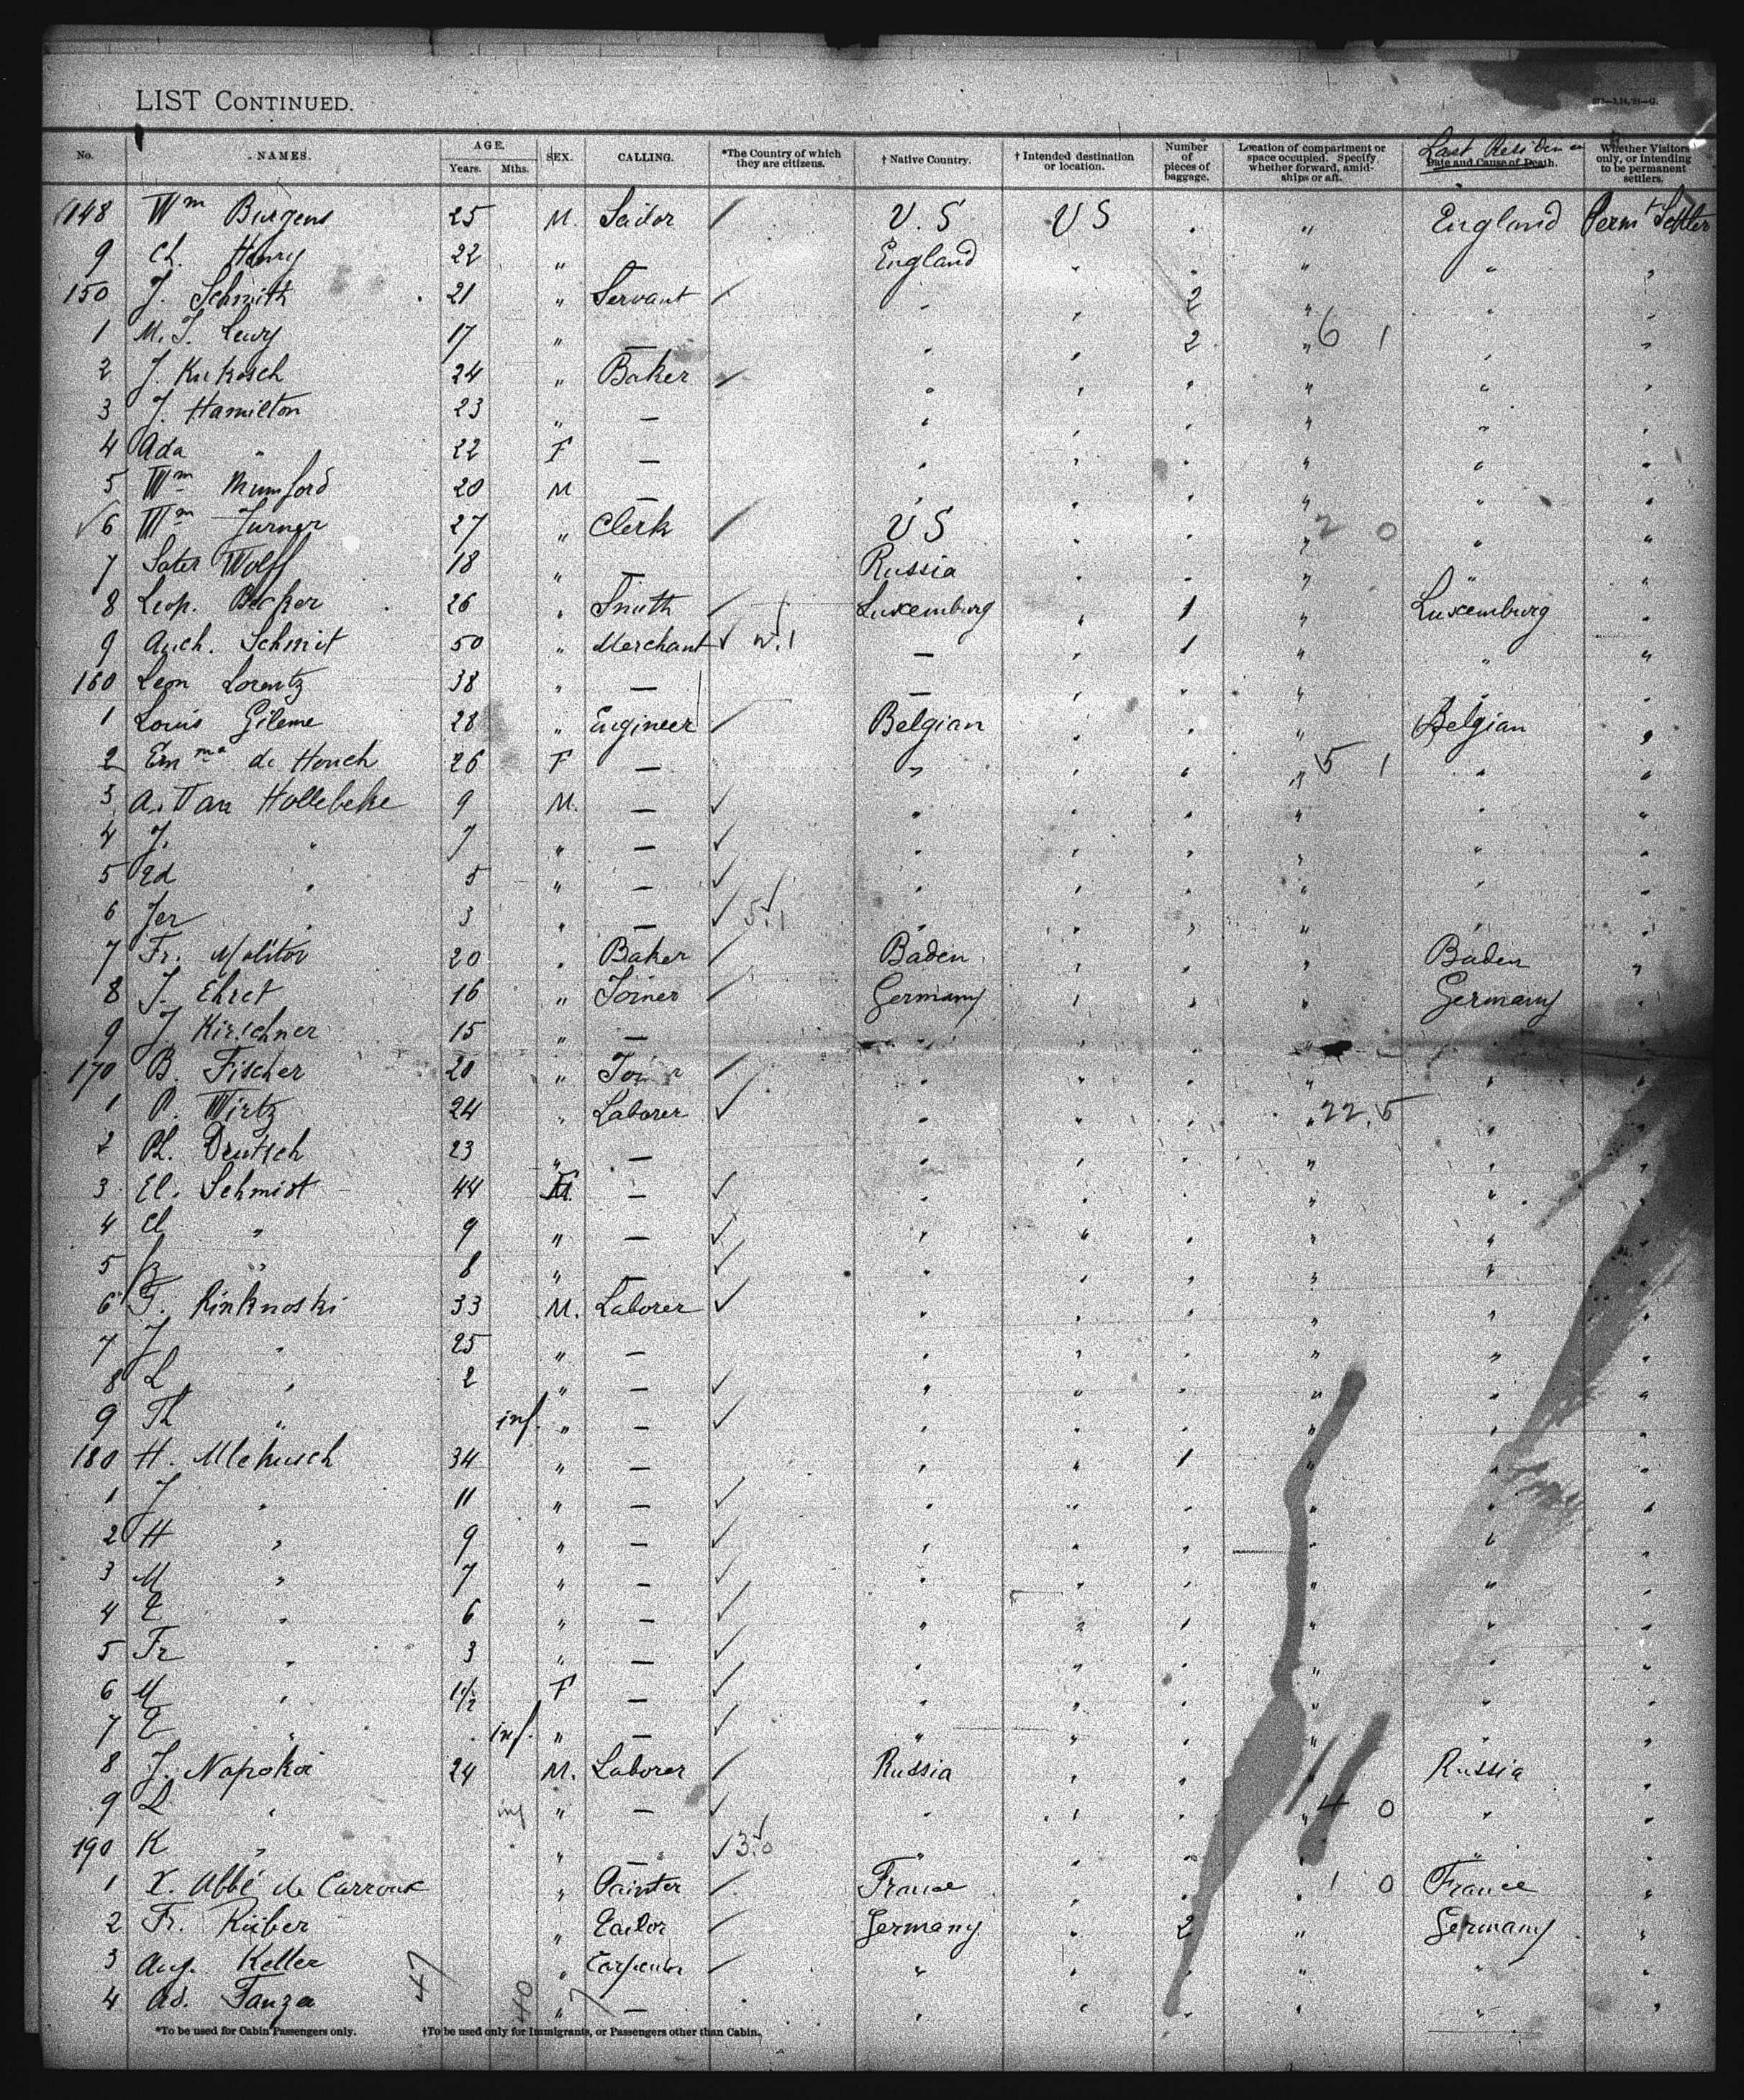 LIST CONTINUED.
No. NAMES. AGE. Years. Mths. SEX. CALLING. *The Country of which they are citizens. † Native Country. † Intended destination or location. Number of pieces of baggage. Location of compartment or space occupied. Specify whether forward, amidships or aft. Last Residence Date and Cause of Death. Whether Visitors only, or intending to be permanent settlers.
148 Wm Burgens 25 M. Sailor / U.S US " " England Permt Settler
9 Ch. Henry 22 " England " " " " "
150 J. Schmith 21 " Servant / " " 2 " " "
1 M. J. Lewy 17 " — " " 2 " 6 1 " "
2 J. Kukosch 24 " Baker / " " " " " "
3 J. Hamilton 23 " — " " " " " "
4 Ada " 22 F — " " " " " "
5 Wm Mumford 20 M — " " " " " "
6 Wm Turner 27 " Clerk / US " " " 2 0 " "
7 Wolff 18 " — Russia " " " " "
8 Leop. Becker 26 " Smith / Luxemburg " 1 " Luxemburg "
9 Schmit 50 " Merchant ✓ — " 1 " " "
160 Leon Lorentz 38 " — — " " " " "
1 Louis Gileme 28 " Engineer / Belgian " " " Belgian "
2 Emma de Honch 26 F — " " " " 5 1 " "
3 A. Van Hollebeke 9 M. — ✓ " " " " " "
4 J. " 7 " — ✓ " " " " " "
5 Ed " 5 " — ✓ " " " " " "
6 Jer " 3 " — ✓ 5.1 " " " " " "
7 Fr. Molitor 20 " Baker / Baden " " " Baden "
8 J. Ehret 16 " Joiner / Germany " " " Germany "
9 J. Kirschner 15 " — " " " " " "
170 B. Fischer 20 " / " " " " " "
1 P. Wirtz 24 " Laborer ✓ " " " " 22.5 " "
2 Ph. Deutsch 23 " — " " " " " "
3 El. Schmidt 44 F — ✓ " " " " " "
4 El " 9 " — ✓ " " " " " "
5 " 8 " — ✓ " " " " " "
6 F. Rinknoski 33 M. Laborer ✓ " " " " " "
7 J " 25 " — " " " " " "
8 L " 2 " — ✓ " " " " " "
9 Th " inf. " — ✓ " " " " " "
180 H. Mlekusch 34 " — " " 1 " " "
1 J " 11 " — ✓ " " " " " "
2 H " 9 " — ✓ " " " " " "
3 M " 7 " — ✓ " " " " " "
4 " 6 " — ✓ " " " " " "
5 Fr " 3 " — ✓ " " " " " "
6 M " 1½ F — ✓ " " " " " "
7 " inf. " — ✓ " " " " " "
8 J. Napokoi 24 M. Laborer / Russia " " " Russia "
9 L " inf " — ✓ " " " " 4 0 " "
190 K " " — ✓ 3.0 " " " " " "
1 X. Abbé de Carroux " Painter / France " " " 1 0 France "
2 Fr. Küber " Tailor / Germany " 2 " Germany "
3 Aug. Keller " Carpenter / " " " " " "
4 Ad. Fanza " — " " " " " "
47 40 7
*To be used for Cabin Passengers only. †To be used only for Immigrants, or Passengers other than Cabin.